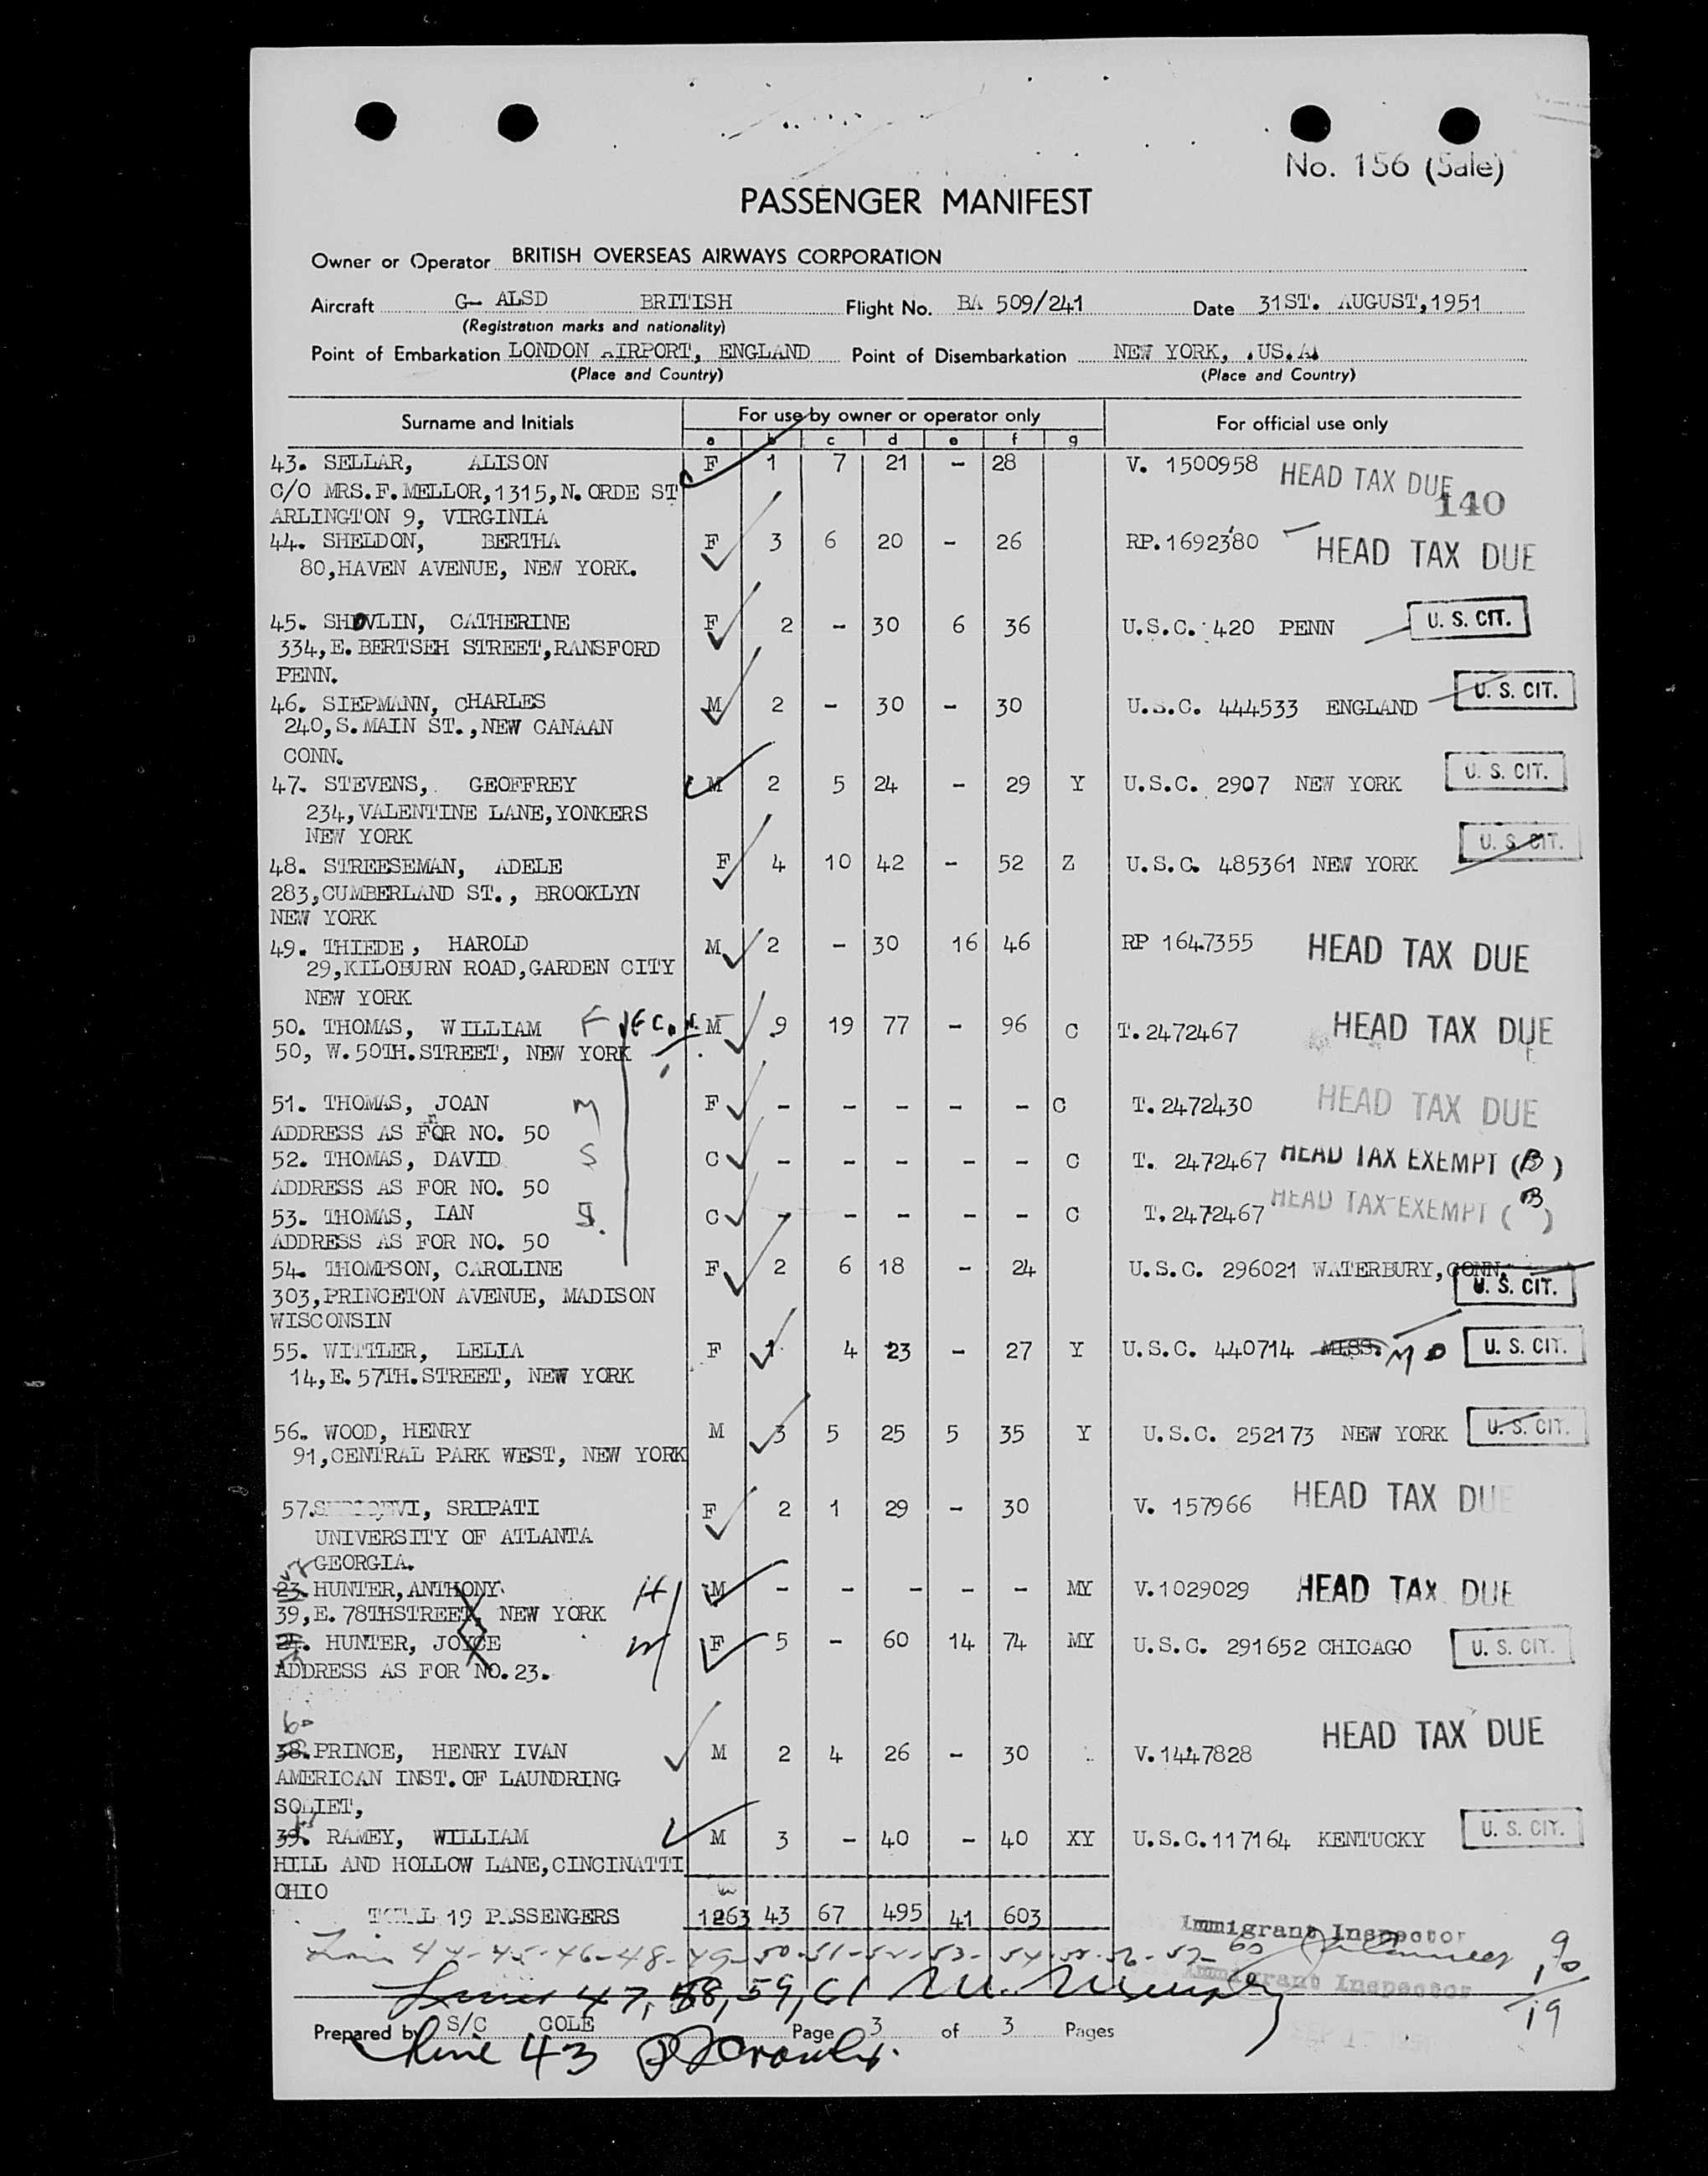 No. 156 (Sale)
PASSENGER MANIFEST
Owner or Operator BRITISH OVERSEAS AIRWAYS CORPORATION
Aircraft G- ALSD BRITISH Flight No. BA 509/241 Date 31ST. AUGUST,1951
(Registration marks and nationality)
Point of Embarkation LONDON AIRPORT, ENGLAND Point of Disembarkation NEW YORK, .US.A.
(Place and Country) (Place and Country)
Surname and Initials For use by owner or operator only For official use only
a b c d e f g
43. SELLAR, ALISON F 1 7 21 - 28 V. 1500958 HEAD TAX DUE
C/O MRS.F.MELLOR,1315,N.ORDE ST 140
ARLINGTON 9, VIRGINIA
44. SHELDON, BERTHA F 3 6 20 - 26 RP.1692380 HEAD TAX DUE
80,HAVEN AVENUE, NEW YORK.
45. SHOVLIN, CATHERINE F 2 - 30 6 36 U.S.C. 420 PENN U. S. CIT.
334,E.BERTSEH STREET,RANSFORD
PENN.
46. SIEPMANN, CHARLES M 2 - 30 - 30 U.S.C. 444533 ENGLAND U. S. CIT.
240,S.MAIN ST.,NEW CANAAN
CONN.
47. STEVENS, GEOFFREY M 2 5 24 - 29 Y U.S.C. 2907 NEW YORK U. S. CIT.
234,VALENTINE LANE,YONKERS
NEW YORK
48. STREESEMAN, ADELE F 4 10 42 - 52 Z U.S.C. 485361 NEW YORK U. S. CIT.
283,CUMBERLAND ST., BROOKLYN
NEW YORK
49. THIEDE, HAROLD M 2 - 30 16 46 RP 1647355 HEAD TAX DUE
29,KILOBURN ROAD,GARDEN CITY
NEW YORK
50. THOMAS, WILLIAM F M 9 19 77 - 96 C T.2472467 HEAD TAX DUE
50, W.50TH.STREET, NEW YORK
51. THOMAS, JOAN M F - - - - - C T.2472430 HEAD TAX DUE
ADDRESS AS FOR NO. 50
52. THOMAS, DAVID S C - - - - - C T. 2472467 HEAD TAX EXEMPT (B)
ADDRESS AS FOR NO. 50
53. THOMAS, IAN S. C - - - - - C T.2472467 HEAD TAX EXEMPT (B)
ADDRESS AS FOR NO. 50
54. THOMPSON, CAROLINE F 2 6 18 - 24 U.S.C. 296021 WATERBURY,CONN.
303,PRINCETON AVENUE, MADISON U. S. CIT.
WISCONSIN
55. WITTLER, LELIA F 1 4 23 - 27 Y U.S.C. 440714 MISS. MO U. S. CIT.
14,E.57TH.STREET, NEW YORK
56. WOOD, HENRY M 3 5 25 5 35 Y U.S.C. 252173 NEW YORK U. S. CIT.
91,CENTRAL PARK WEST, NEW YORK
57. SRIPATI F 2 1 29 - 30 V. 157966 HEAD TAX DUE
UNIVERSITY OF ATLANTA
GEORGIA.
23. HUNTER,ANTHONY H M - - - - - MY V.1029029 HEAD TAX DUE
39,E.78THSTREET, NEW YORK
24. HUNTER, JOYCE W F 5 - 60 14 74 MY U.S.C. 291652 CHICAGO U. S. CIT.
ADDRESS AS FOR NO.23.
60
38.PRINCE, HENRY IVAN M 2 4 26 - 30 V.1447828 HEAD TAX DUE
AMERICAN INST.OF LAUNDRING
SOLIET,
39. RAMEY, WILLIAM M 3 - 40 - 40 XY U.S.C.117164 KENTUCKY U. S. CIT.
HILL AND HOLLOW LANE,CINCINATTI
OHIO
TOTAL 19 PASSENGERS 43 67 495 41 603
Immigrant Inspector
Immigrant Inspector
Lines 47, 58, 59, 61
19
Prepared by S/C COLE Page 3 of 3 Pages
Line 43